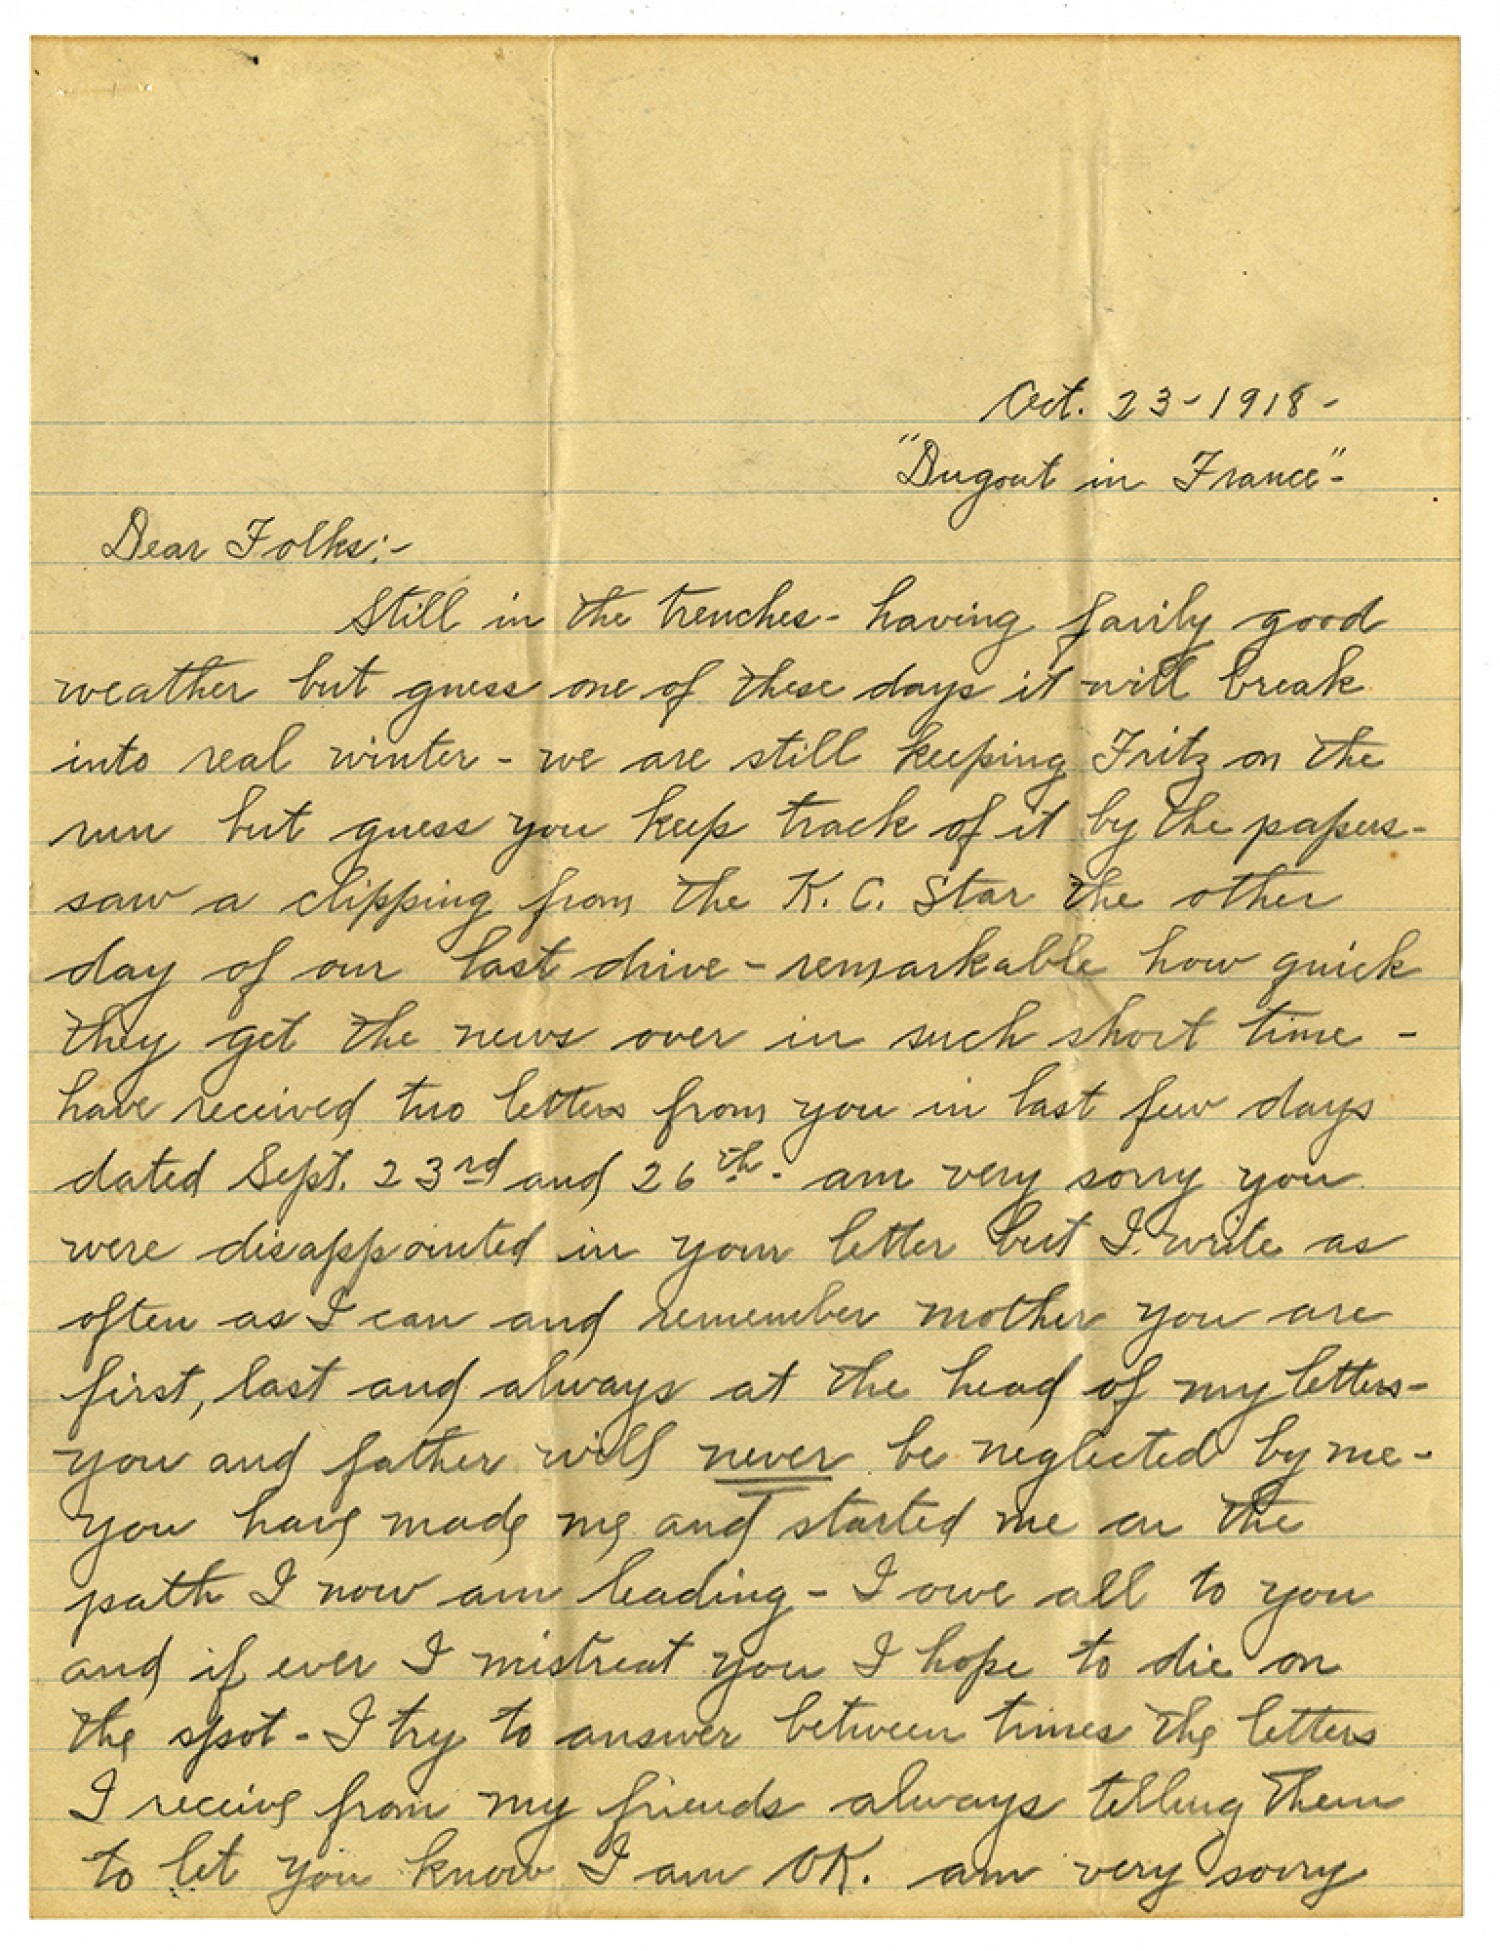 Oct. 23-1918-
"Dugout in France"-
Dear Folks:-
Still in the trenches - having fairly good
weather but guess one of these days it will break
into real winter - we are still keeping Fritz on the
run but guess you keep track of it by the papers-
saw a clipping from the K. C. Star the other
day of our last drive - remarkable how quick
they get the news over in such short time -
have received two letters from you in last few days
dated Sept. 23rd and 26th - am very sorry you
were disappointed in your letter but I write as
often as I can and remember mother you are
first, last and always at the head of my letters-
you and father will never be neglected by me -
you have made me and started me on the
path I now am leading - I owe all to you
and if ever I mistreat you I hope to die on
the spot - I try to answer between times the letters
I receive from my friends always telling them
to let you know I am OK. am very sorry